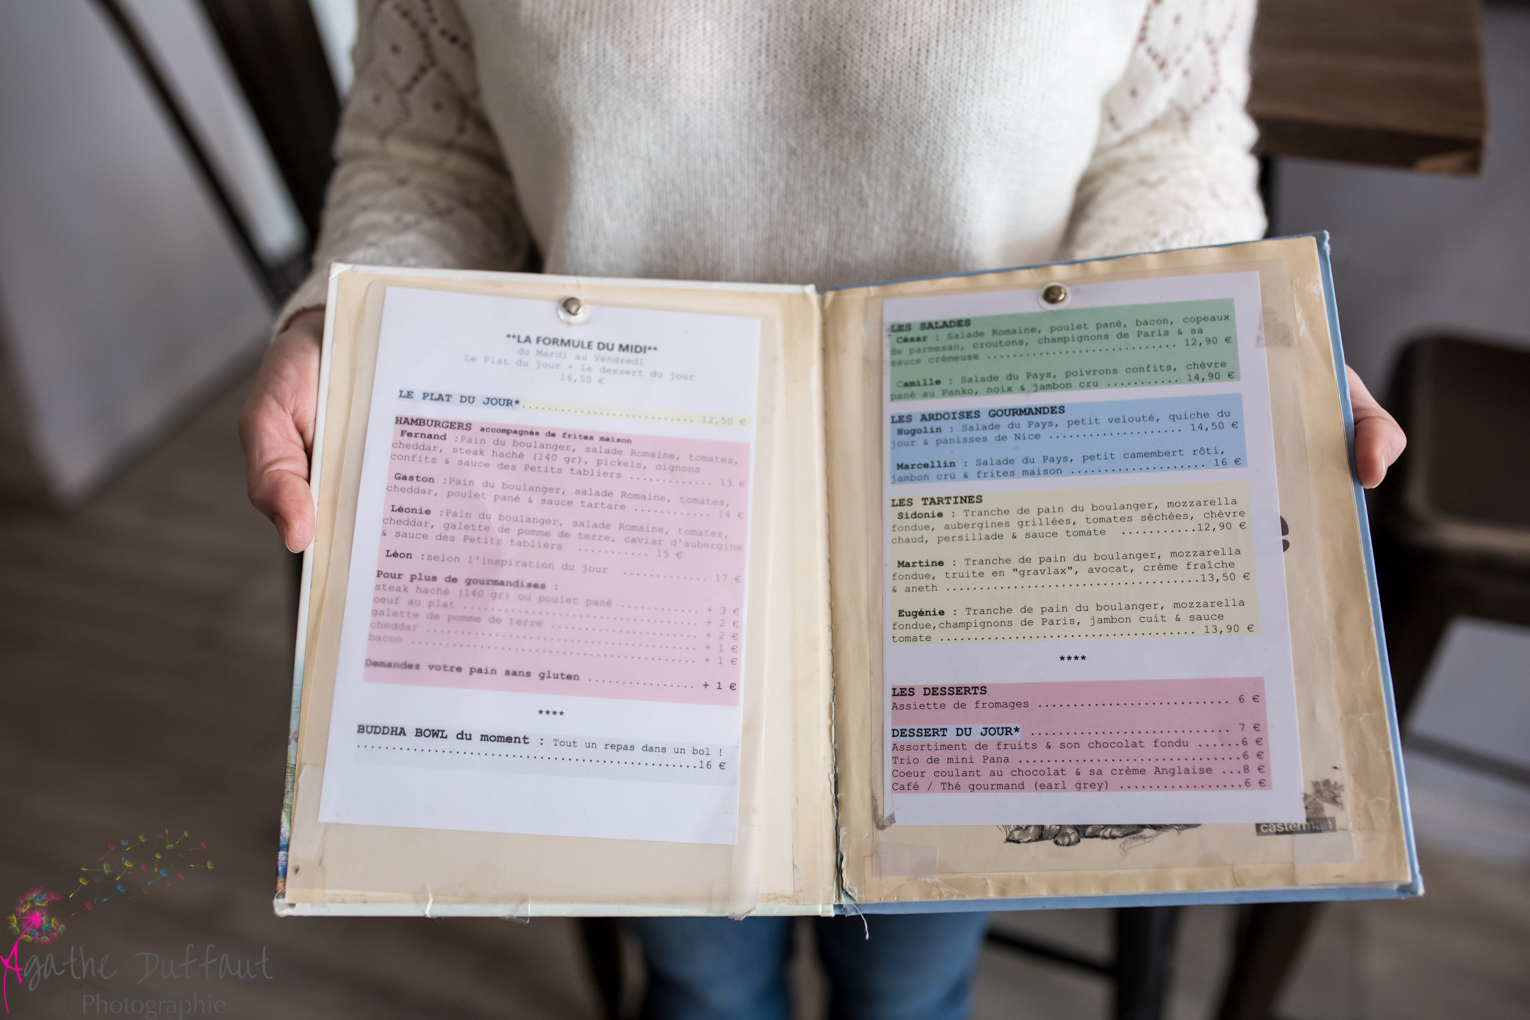 **LA FORMULE DU MIDI**
du Mardi au Vendredi
Le Plat du jour + le dessert du jour
16,50 €
LE PLAT DU JOUR*............................ 12,50 €
HAMBURGERS accompagnés de frites maison
Fernand :Pain du boulanger, salade Romaine, tomates,
cheddar, steak haché (140 gr), pickels, oignons
confits & sauce des Petits tabliers ............ 13 €
Gaston :Pain du boulanger, salade Romaine, tomates,
cheddar, poulet pané & sauce tartare ........... 14 €
Léonie :Pain du boulanger, salade Romaine, tomates,
cheddar, galette de pomme de terre, caviar d'aubergine
& sauce des Petits tabliers ........... 15 €
Léon :selon l'inspiration du jour ............ 17 €
Pour plus de gourmandises :
steak haché (140 gr) ou poulet pané ........... + 3 €
oeuf au plat .................................. + 2 €
galette de pomme de terre ..................... + 2 €
cheddar ....................................... + 1 €
bacon ......................................... + 1 €
Demandez votre pain sans gluten ............... + 1 €
****
BUDDHA BOWL du moment : Tout un repas dans un bol !
..................................................16 €
LES SALADES
César : Salade Romaine, poulet pané, bacon, copeaux
de parmesan, croutons, champignons de Paris & sa
sauce crémeuse ............................ 12,90 €
Camille : Salade du Pays, poivrons confits, chèvre
pané au Panko, noix & jambon cru ........... 14,90 €
LES ARDOISES GOURMANDES
Hugolin : Salade du Pays, petit velouté, quiche du
jour & panisses de Nice .................... 14,50 €
Marcellin : Salade du Pays, petit camembert rôti,
jambon cru & frites maison .................... 16 €
LES TARTINES
Sidonie : Tranche de pain du boulanger, mozzarella
fondue, aubergines grillées, tomates séchées, chèvre
chaud, persillade & sauce tomate ...........12,90 €
Martine : Tranche de pain du boulanger, mozzarella
fondue, truite en "gravlax", avocat, crème fraîche
& aneth .....................................13,50 €
Eugénie : Tranche de pain du boulanger, mozzarella
fondue,champignons de Paris, jambon cuit & sauce
tomate ..................................... 13,90 €
****
LES DESSERTS
Assiette de fromages ............................ 6 €
DESSERT DU JOUR* ................................ 7 €
Assortiment de fruits & son chocolat fondu ......6 €
Trio de mini Pana ................................6 €
Coeur coulant au chocolat & sa crème Anglaise ...8 €
Café / Thé gourmand (earl grey) ..................6 €
casterman
Agathe Duffaut
Photographie